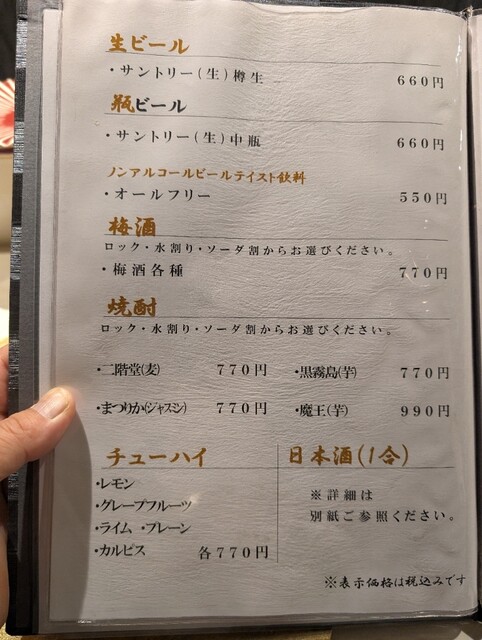 生ビール
・サントリー(生)樽生 660円
瓶ビール
・サントリー(生)中瓶 660円
ノンアルコールビールテイスト飲料
・オールフリー 550円
梅酒
ロック・水割り・ソーダ割からお選びください。
・梅酒各種 770円
焼酎
ロック・水割り・ソーダ割からお選びください。
・二階堂(麦) 770円 ・黒霧島(芋) 770円
・まつりか(ジャスミン) 770円 ・魔王(芋) 990円
チューハイ
・レモン
・グレープフルーツ
・ライム ・プレーン
・カルピス 各770円
日本酒(1合)
※詳細は
別紙ご参照ください。
※表示価格は税込みです